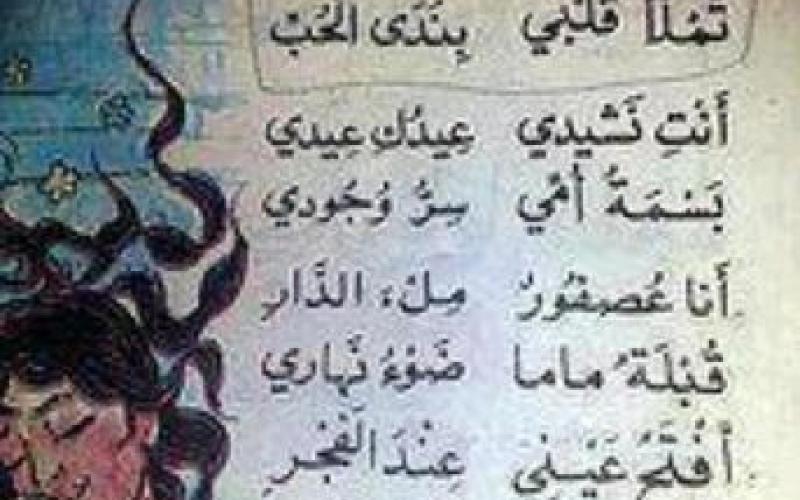 تَمْلَأُ قَلْبِي بِنَدَى الْحُبِّ
أَنْتِ نَشِيدِي عِيدُكِ عِيدِي
بَسْمَةُ أُمِّي سِرُّ وُجُودِي
أَنا عُصفُورٌ مِلْءَ الدَّارِ
قُبْلَةُ ماما ضَوْءُ نَهارِي
أَفْتَحُ عَيْنِي عِنْدَ الْفَجْرِ